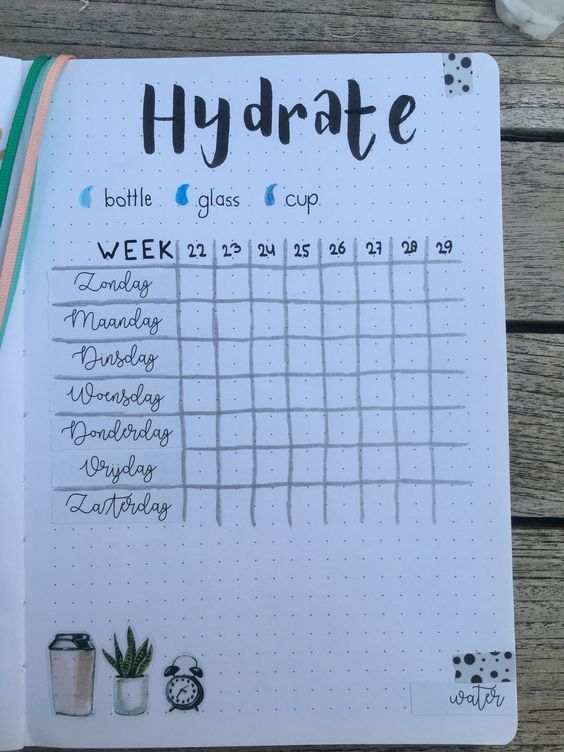 Hydrate
bottle glass cup
WEEK 22 23 24 25 26 27 28 29
Zondag
Maandag
Dinsdag
Woensdag
Donderdag
Vrijdag
Zaterdag
water